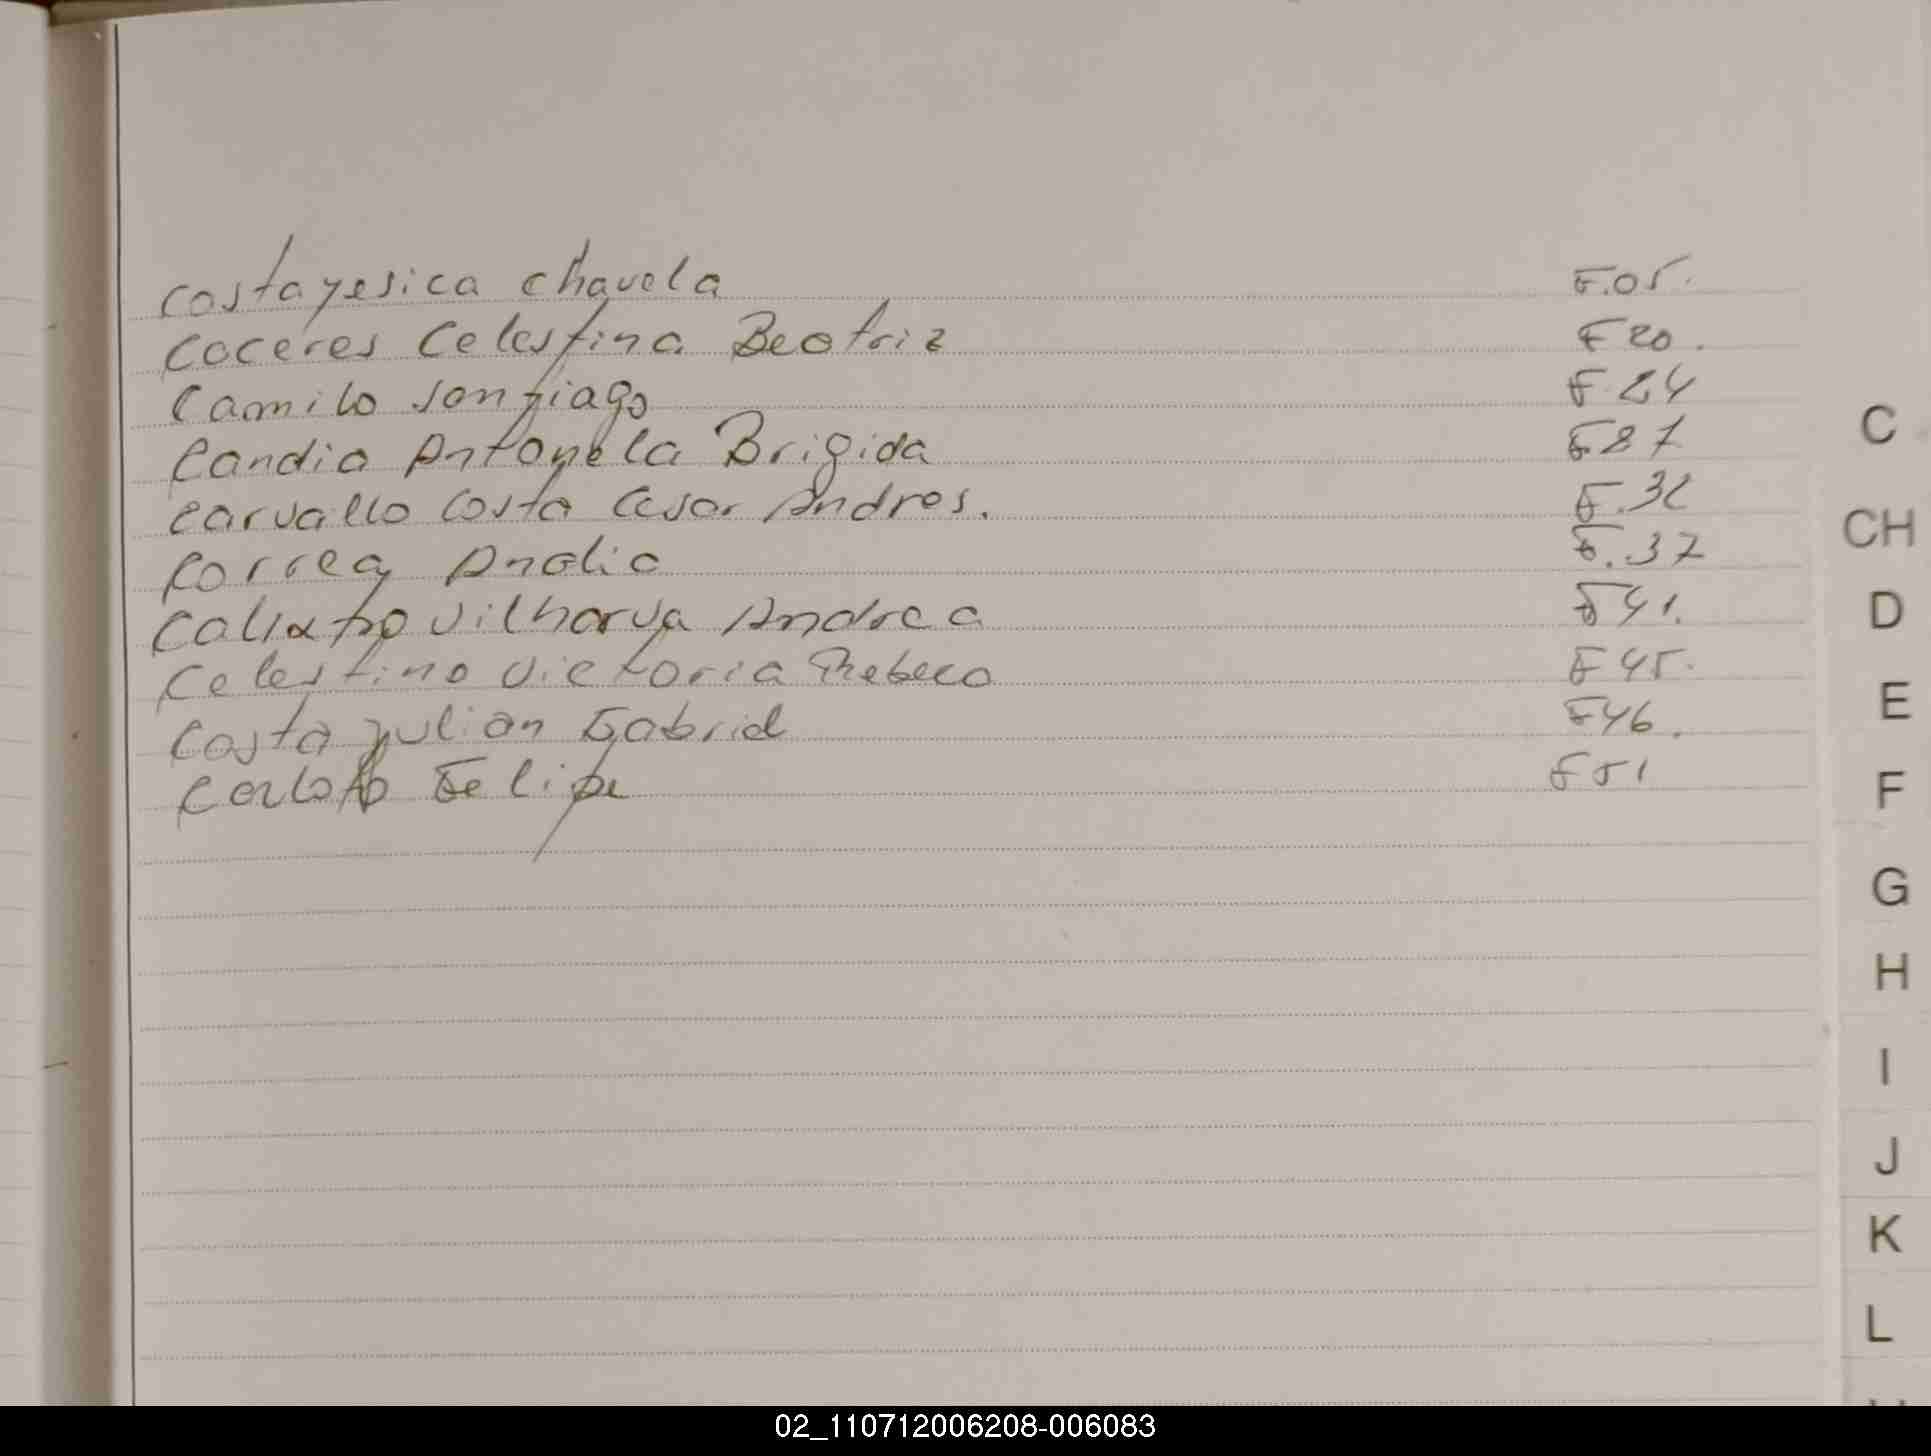 Costa yesica chavela F.05.
Caceres Celestina Beatriz F 20.
Camilo Santiago F 24
Candia Antonela Brigida F 27
Carvallo Costa Cesar Andres. F.32
Correa Analia F.37
Calixtro vilharva Andrea F 41.
Celestino Victoria Rebeca F 45.
Costa Julian Gabriel F 46.
Felipe F 51
C
CH
D
E
F
G
H
I
J
K
L
02_110712006208-006083